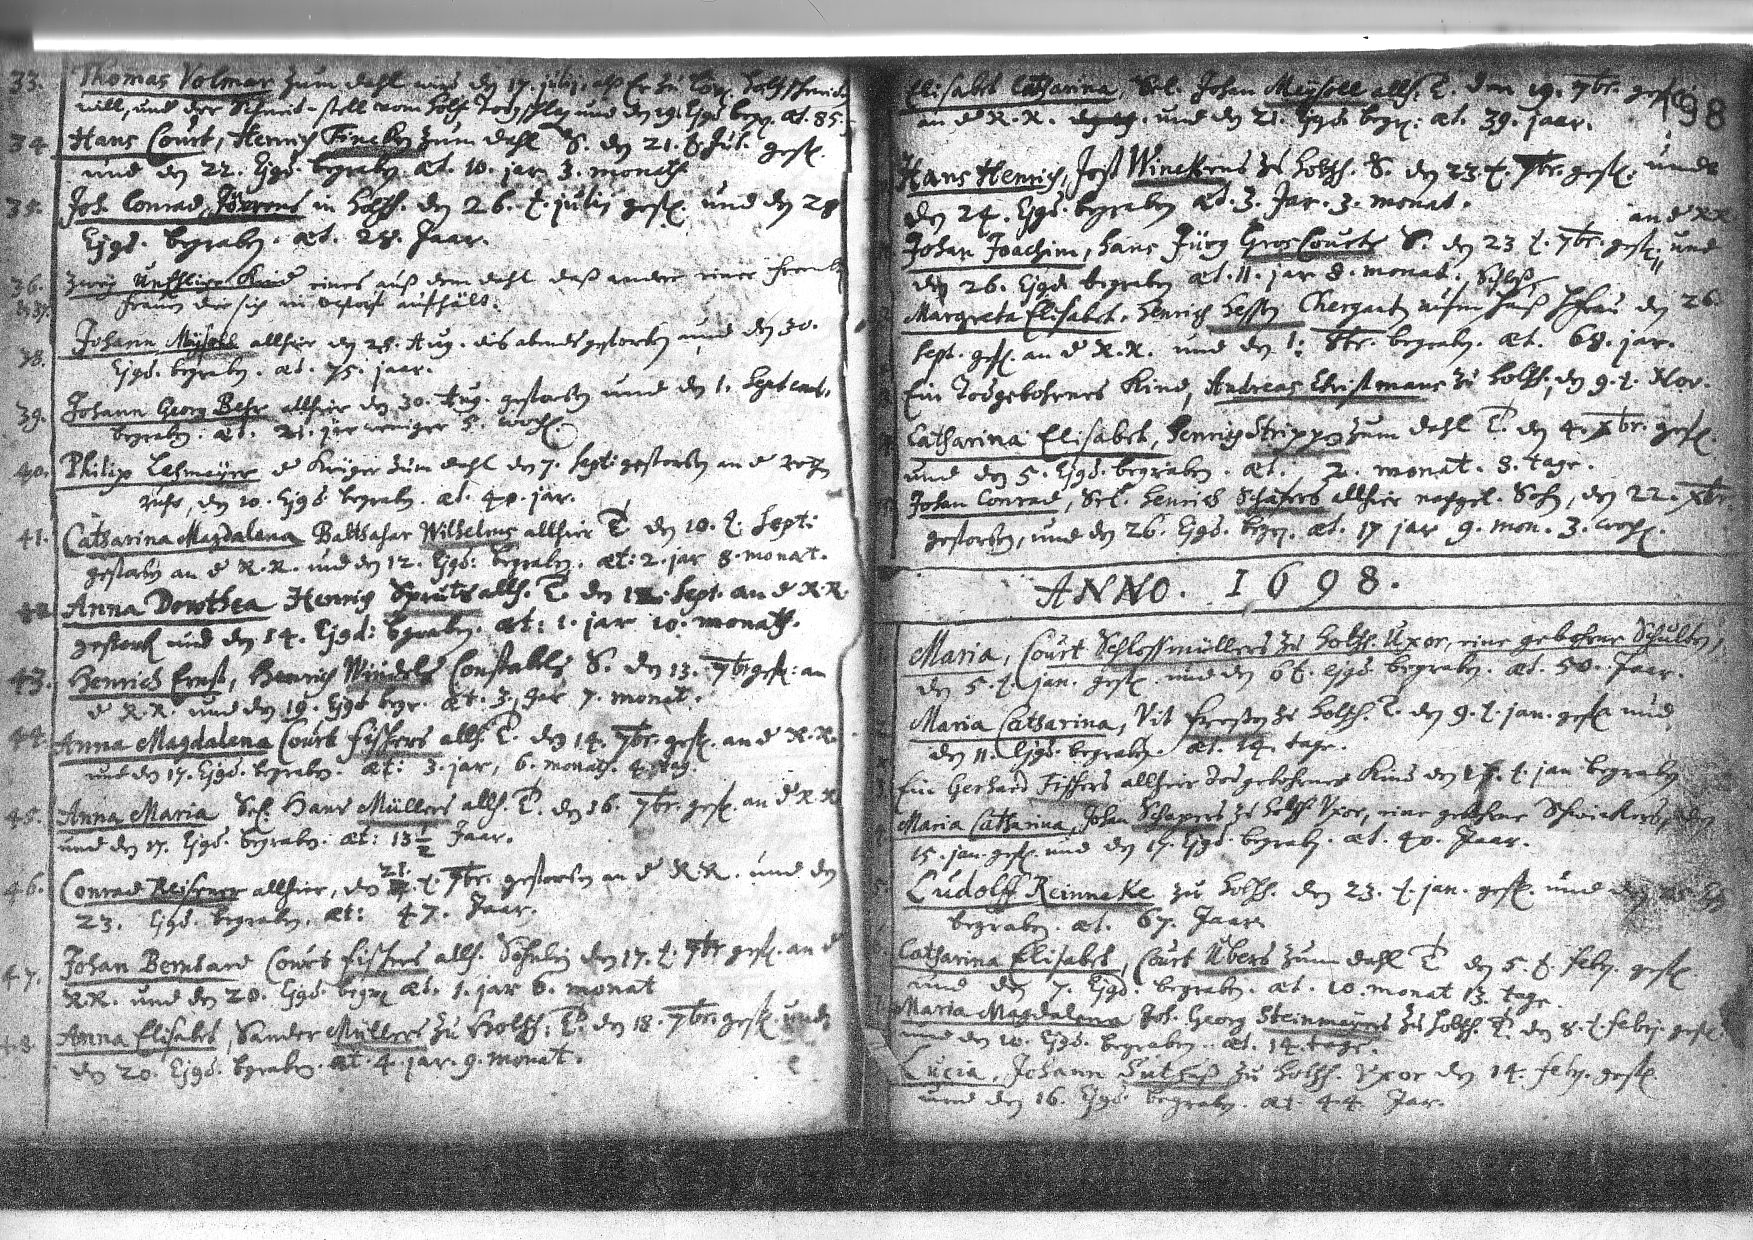 33. Thomas Volmar zum dahl wird den 17. julij, als Er zu
will, und der Schnit-stell vom holtz und den 19. Ejsd. begr. æt. 85.
34. Hans Court, Henrich Fincken zum dahl S. den 21. t. Jul. gest.
und den 22. Ejsd. begraben æt. 10. jar 3. monath
35. Joh. Conrad Jörrens in holtzh. den 26. t. julij gest. und den 28
Ejsd. begraben. æt. 28. Jaar.
36. zwey Kind eines auß dem dahl daß andere einer
& 37. frauen die sich in aufhält.
38. Johann Meysoll allhier den 28. Aug. des abends gestorben und den 30.
Ejsd. begraben. æt. 75. jaar.
39. Johann Georg Behr allhier den 30. Aug. gestorben und den 1. Septemb.
begraben. æt. 21. jar weniger 5. woch.
40. Philip Lehmeyer d Krüger zum dahl den 7. Sept: gestorben an d rothen
ruhr, den 10. Ejsd. begraben. æt. 40. jar.
41. Catharina Magdalena Balthasar Wilhelms allhier T. den 10. t. Sept:
gestorben an d R.R. und den 12. Ejsd: begraben. æt: 2. jar 8. monat.
42. Anna Dorothea Henrich Spruts allh. T. den 12. Sept. an d R.R.
gestorb und den 14. Ejsd: begraben. æt: 1. jar 10. monath.
43. Henrich Ernst, Henrich Windels Constabels S. den 13. 7br. gest: an
d R.R. und den 19. Ejsd begr. æt. 3. jar 7. monat.
44. Anna Magdalena Court fischers allh. T. den 14. 7br. gest. an d R.R.
und den 17. Ejsd. begraben. æt: 3. jar, 6. monat. 4. tag.
45. Anna Maria Sel. Hans Müllers allh. T. den 16. 7br. gest. an d R.R.
und den 17. Ejsd. begraben. æt: 13 1/2 Jaar.
46. Conrad Reisener allhier, den 21. t. 7br. gestorben an d R.R. und den
23. Ejsd. begraben. æt: 47. Jaar.
47. Johan Bernhard Court fischers allh. Söhnlein den 17. t. 7br gest. an d
R.R. und den 20. Ejsd. begr. æt. 1. jar 6. monat
48. Anna Elisabet, Sander Müllers zu Holtzh. T. den 18. 7br. gest. und
den 20. Ejsd. begraben. æt. 4. jar. 9. monat.
98
Elisabet Catharina, Sel. Johan Meysoll allh. T. den 19. 7br. gest.
an d R.R. und den 21. Ejsd begr. æt. 39. jaar.
Hans Henrich, Jost Winckens zu holtzh. S. den 23. t. 7br. gest. und
den 24. Ejsd. begraben æt. 3. Jar. 3. monat.
an d R.R.
Johan Joachim, hans Jürg GrosCourts S. den 23 t. 7br. gest. und
den 26. Ejsd. begraben æt. 11. jar 8. monat.
Schloß
Margreta Elisabet, Henrich Hessen aufm hauß frau den 26.
Sept. gest. an d R.R. und den 1. 8br. begraben. æt. 68. jar.
Ein Todgebohrnes Kind, Andreas Christmans zu holtzh. den 9. t. Nov.
Catharina Elisabet, Henrich Strippen zum dahl T. den 4. Xbr. gest.
und den 5. Ejsd. begraben. æt. 2. monat. 8. tage.
Johan Conrad, Sel. Henrich Schäfers allhier nachgel. Sohn, den 22. Xbr.
gestorben, und den 26. Ejsd. begr. æt. 17 jar 9. mon. 3. woch.
ANNO. 1698.
Maria, Court Schlossmüllers zu holtzh. Uxor, eine gebohrne Schulten,
den 5. t. jan. gest. und den 6t. ejsd. begraben. æt. 50. Jaar.
Maria Catharina, Vit zu holtzh. T. den 9. t. jan. gest. und
den 11. Ejsd. begraben. æt. 14. tage.
Ein Gerhard Fischers allhier todgebohrnes Kind den t. jan begraben
Maria Catharina, Johan Schapers zu holtzh. Uxor, eine gebohrne den
15. jan. gest. und den 17. Ejsd. begraben. æt. 40. Jaar.
Ludolff Reinneke zu holtzh. den 23. t. jan. gest. und den
begraben. æt. 67. Jaar.
Catharina Elisabet, Court Übers zum dahl T. den 5. t. febr. gest
und den 7. Ejsd. begraben. æt. 10. monat 13. tage.
Maria Magdalena Joh. Georg Steinmeyers zu holtzh. T. den 8. t. febr. gest.
und den 10. Ejsd. begraben. æt. 14. tage.
Lucia, Johann zu holtzh. Uxor den 14. febr. gest.
und den 16. Ejsd. begraben. æt. 44. Jar.